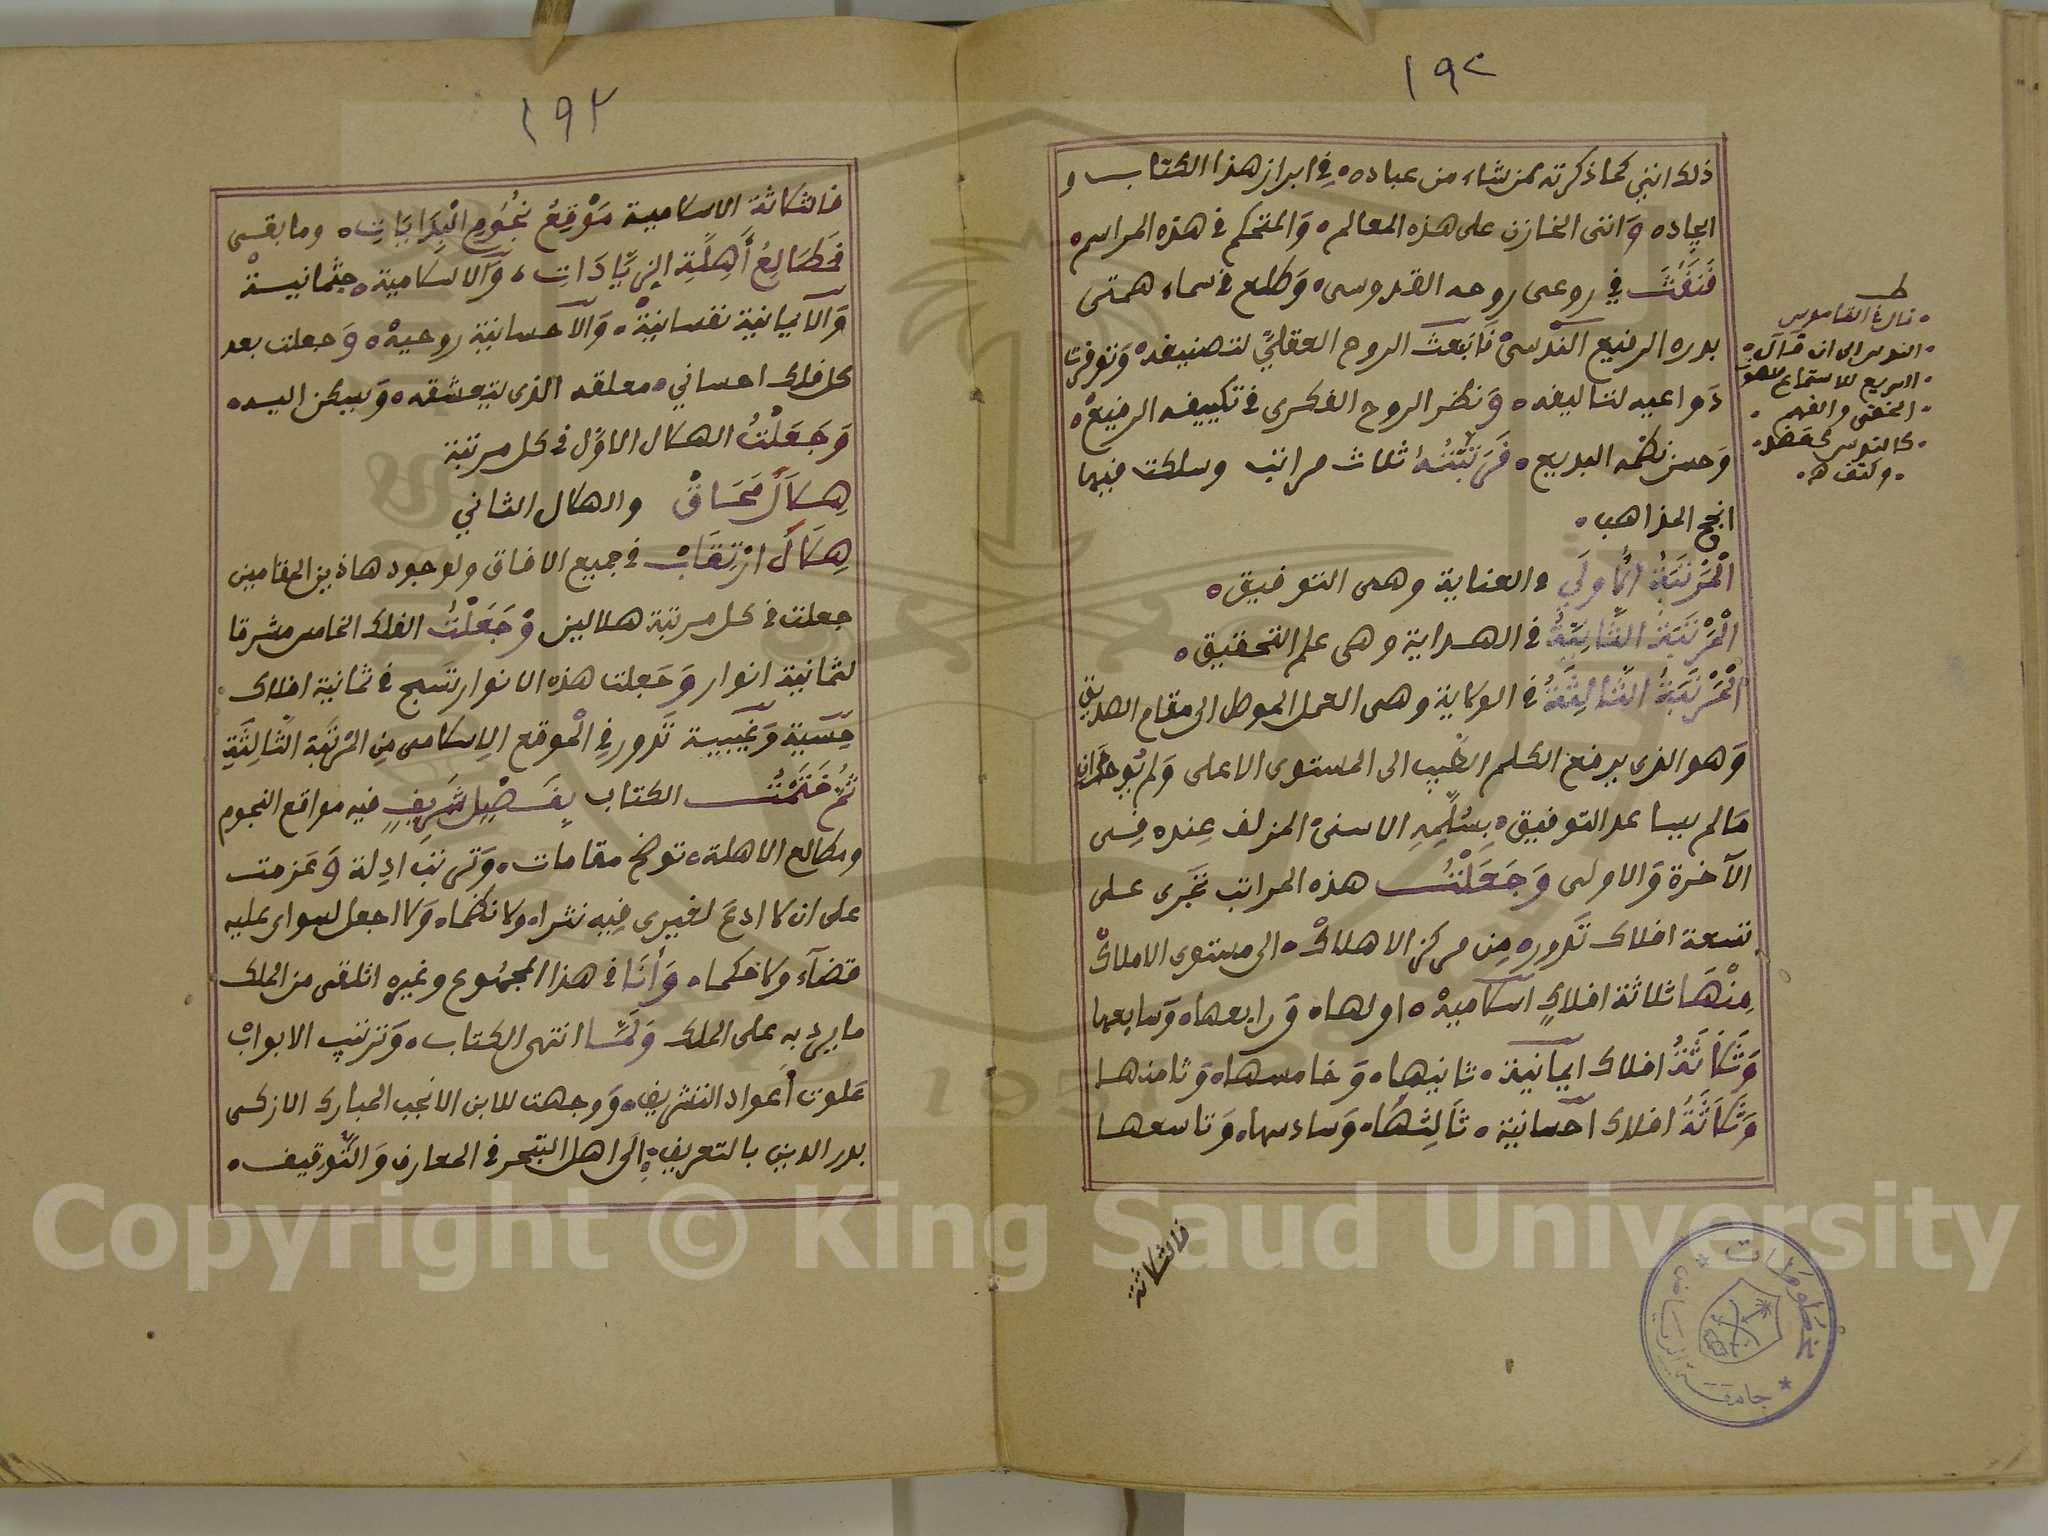 ١٩٢
ذلك انني كما ذكرته ممن شاء من عباده في ابراز هذا الكتاب و
ايجاده وَانني الخازن على هذه المعالم وَالمتحكم في هذه المراسم
فَنَفَثَ في روعى روحه القدوسى وَطلع في سماء همتى
بدره الرفيع الندسىّ فانبعث الروح العقلىّ لتصنيفه وَتوفرت
دَواعيه لتاليفه وَنظر الروح الفكرى في تكييفه الرفيع
وَحسن نظمه البديع فَرَتَّبْتُهُ ثلاث مراتب وسلكت فيها
انجح المذاهب
الْمَرْتَبَةُ الْأُولَي والعناية وهى التوفيق
الْمَرْتَبَةُ الثَّانِيَةُ في الهداية وهى علم التحقيق
الْمَرْتَبَةُ الثَّالِثَةُ في الولاية وهى العمل الموصل الى مقام الصديق
وَهو الذى يرفع الكلم الطيب الى المستوى الاعلى وَلم يُوجد ان
مَالم يساعد التوفيق بِسُلَّمِهِ الاسنىٰ المزلف عِنده فِى
الآخرة وَالاولى وَجَعَلْتُ هذه المراتب تجرى على
تسعة افلاك تَدوره مِن مركز الاهلاك الى مستوى الاملاك
مِنْهَا ثلاثة افلاكٍ اسلامية اولها وَرابعها وَسابعها
وَثَلَاثَةُ افلاك ايمانية ثانيها وَخامسها وَثامنها
وَثَلَاثَةُ افلاك احسانية ثَالِثهَا وَسادسها وَتاسعها
فالثلاثة
قال في القاموس
الندس الى ان قال
السريع للاستماع للصوت
الخفى والفهم
كالندس كعضد
وكتف ه
١٩٣
فالثلاثة الاسلامية مَوْقِعُ نُجُومِ الْبِدَايَاتِ وما بقى
فَطَالِعُ أَهِلَّةِ الزِّيَادَاتِ وَالاسلامية جثمانية
وَالايمانية نفسانية وَالاحسانية روحية وَجعلت بعد
كل فلك احساني معلقه الذى يتعشقه وَيسكن اليه
وَجَعَلْتُ الهلال الاوَّل في كل مرتبة
هِلَالَ مَحَاقٍ والهلال الثاني
هِلَالَ ارْتِقَابٍ في جميع الافاق ولوجود هاذين المقامين
جعلت في كل مرتبة هلالين وَجَعَلْتُ الفلك الخامس مشرقا
لثمانية انوار وَجَعلت هذه الانوار تسبح في ثمانية افلاك
حِسِّيَة وَغَيبية تَدور فِي الْموقع الاِسلامى مِن المرتَبة الثَّالِثَةِ
ثُمَّ خَتَمْتُ الكتاب بِفَصْلٍ شَرِيفٍ فيه مواقع النجوم
ومطالع الاهلة توضح مقامات وَترتب ادِلة وَعَزمت
على ان لا ادعَ لغيرى فِيه نثرا ولا نظما وَلا اجعل لسواى عليه
قضآء ولا حُكما وَأَنَا في هذا المجموع وغيره اتلقى من الملك
ما يرد به على الملك وَلَمَّا انتهى الكتاب وَترتيب الابواب
عَلوت أَعواد التشريف وَوجهت للابن الانجب المبارك الازكى
بدر الدين بالتعريف اِلَى اهل التبحر في المعارف وَالتَّوقيف